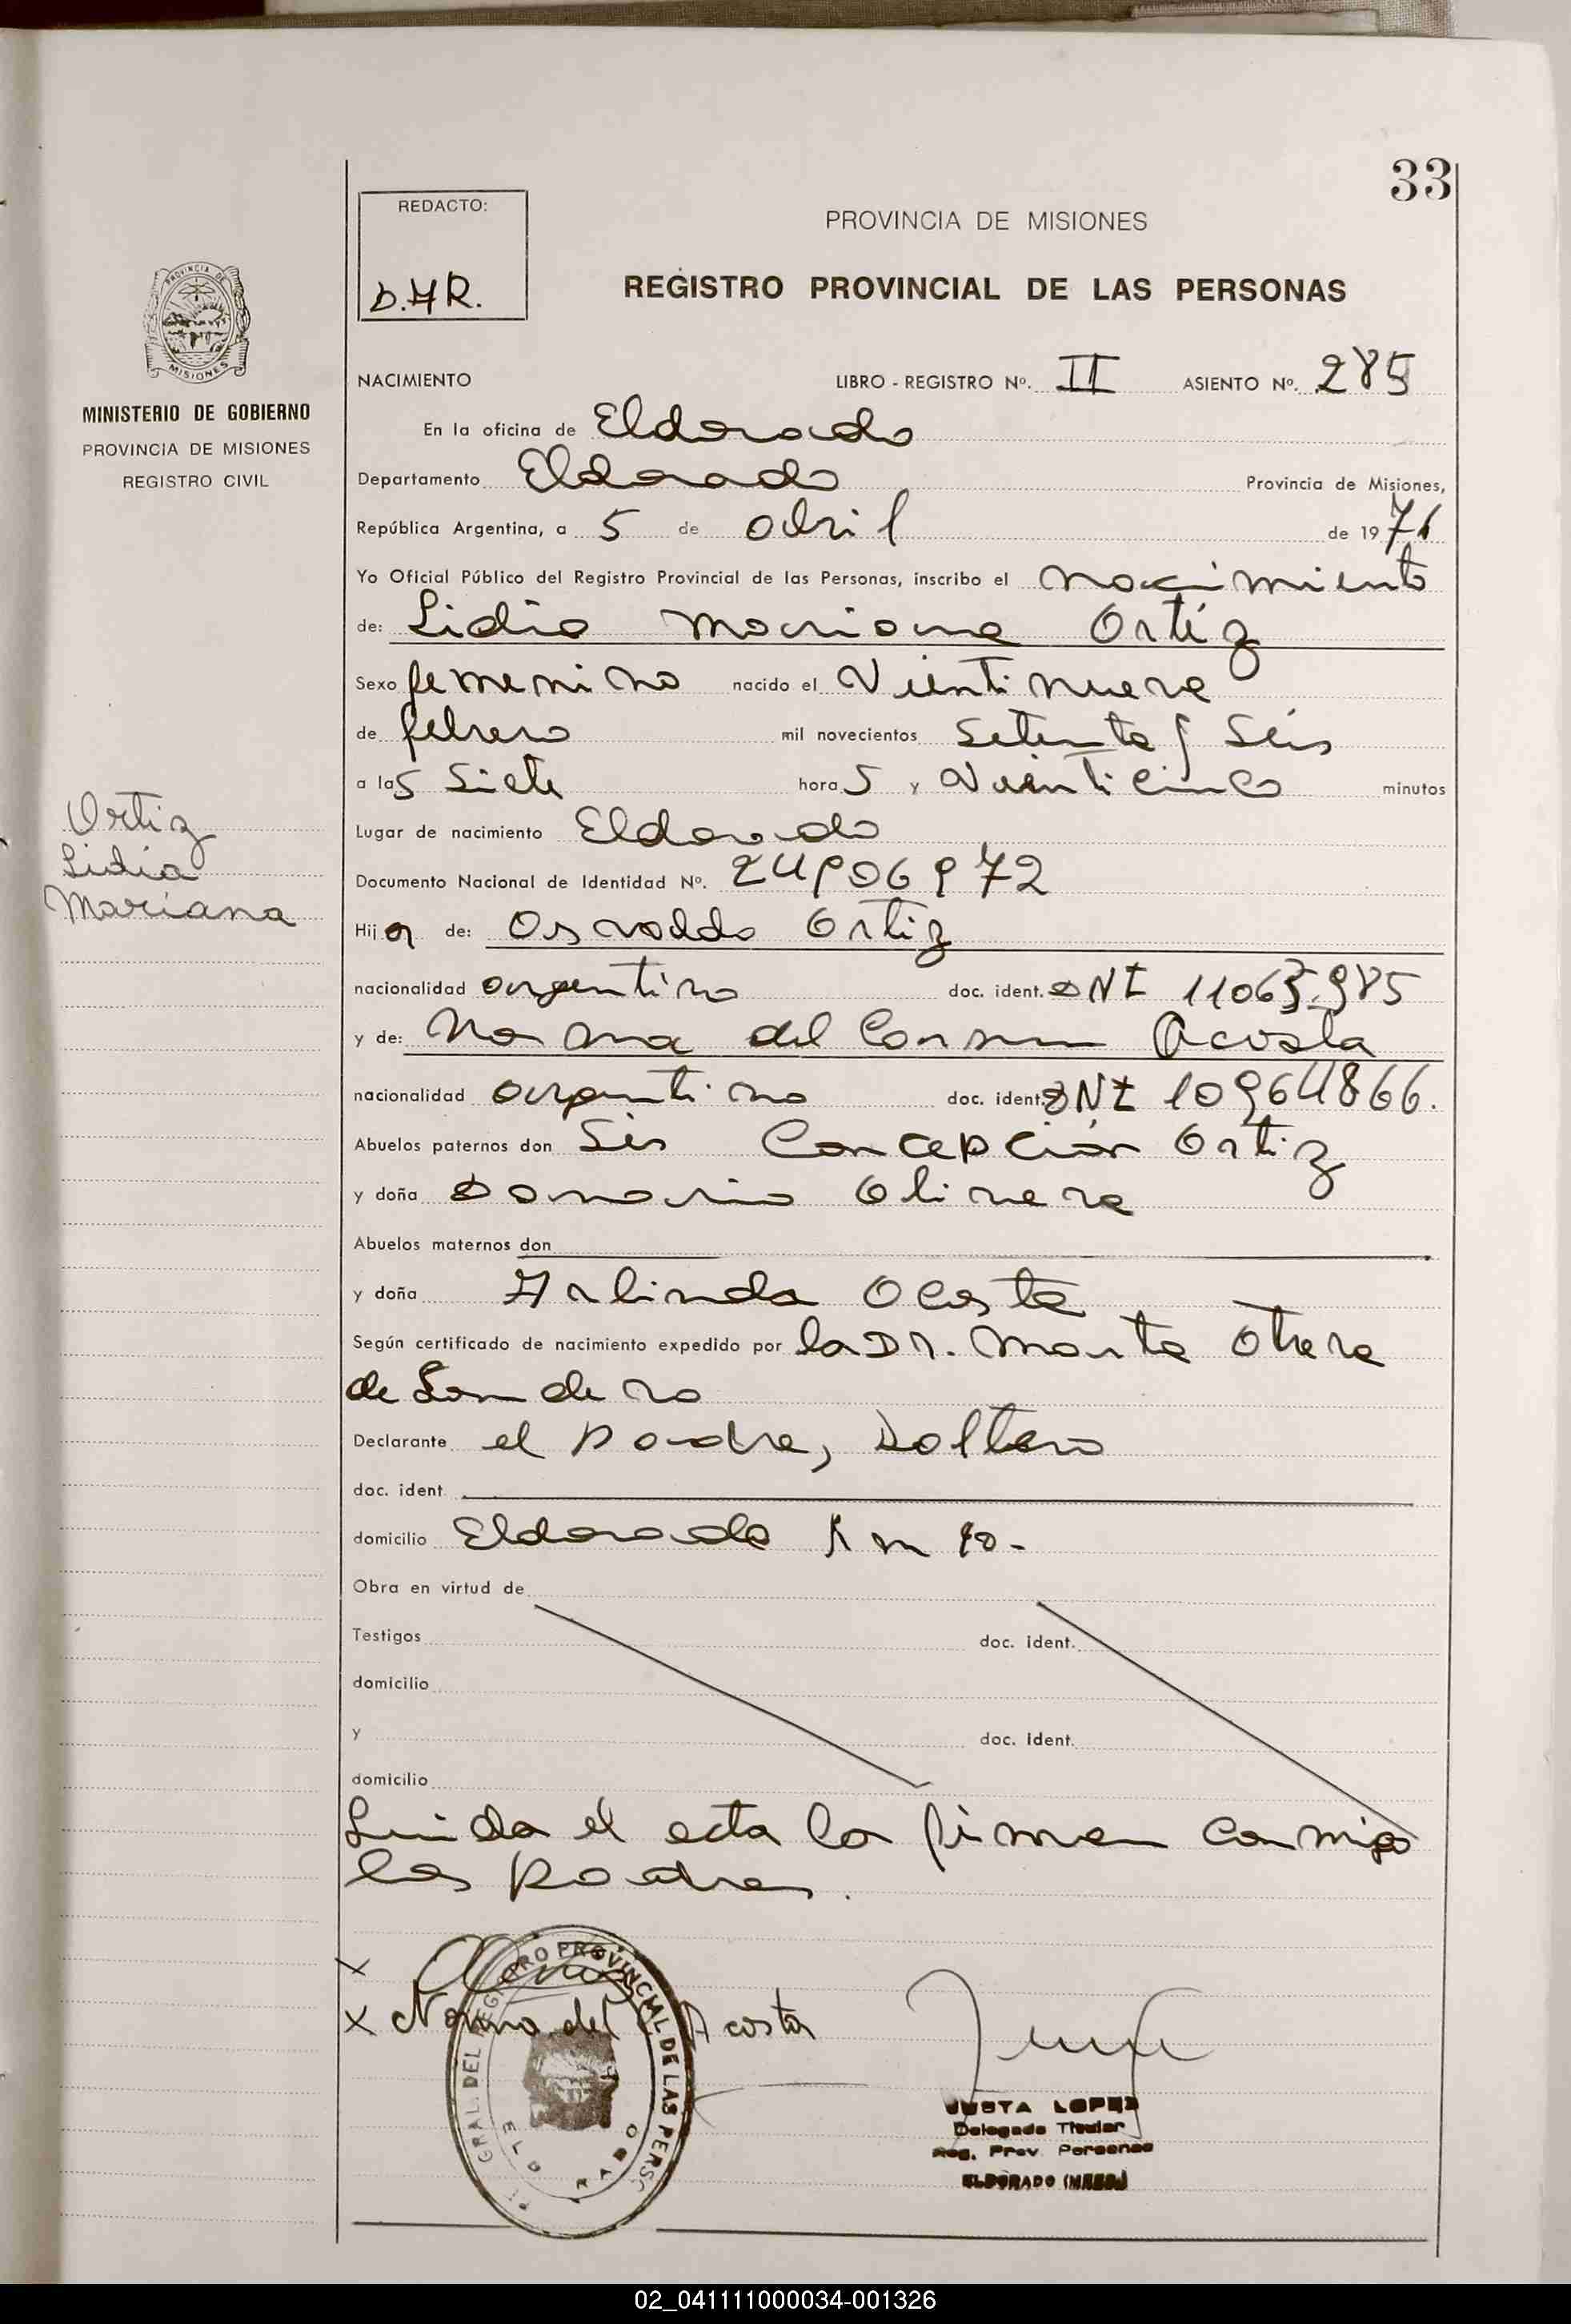 33
REDACTO:
D.H.R.
PROVINCIA DE MISIONES
REGISTRO PROVINCIAL DE LAS PERSONAS
PROVINCIA DE
MISIONES
MINISTERIO DE GOBIERNO
PROVINCIA DE MISIONES
REGISTRO CIVIL
Ortiz
Lidia
Mariana
NACIMIENTO LIBRO - REGISTRO Nº. II ASIENTO Nº. 285
En la oficina de Eldorado
Departamento Eldorado Provincia de Misiones,
República Argentina, a 5 de abril de 1976
Yo Oficial Público del Registro Provincial de las Personas, inscribo el nacimiento
de: Lidia Mariana Ortíz
Sexo femenino nacido el Veintinueve
de febrero mil novecientos setenta y Seis
a las Siete horas y Veinticinco minutos
Lugar de nacimiento Eldorado
Documento Nacional de Identidad Nº. 24906972
Hija de: Osvaldo Ortiz
nacionalidad argentino doc. ident. DNI 11063.985
y de: Norma del Carmen Acosta
nacionalidad argentina doc. ident. DNI 10964866.
Abuelos paternos don Concepción Ortiz
y doña Olivera
Abuelos maternos don
y doña Arlinda Acosta
Según certificado de nacimiento expedido por la Dr. Marta
de
Declarante el padre, soltero
doc. ident.
domicilio Eldorado Km 10-
Obra en virtud de
Testigos doc. ident.
domicilio
y doc. ident.
domicilio
Leida el acta la firman conmigo
los padres.
x
x Norma del C Acosta
GRAL. DEL REGISTRO PROVINCIAL DE LAS PERSO
ELDORADO
JUSTA LOPEZ
Delegada Titular
Reg. Prov. Personas
ELDORADO (MNES)
02_041111000034-001326